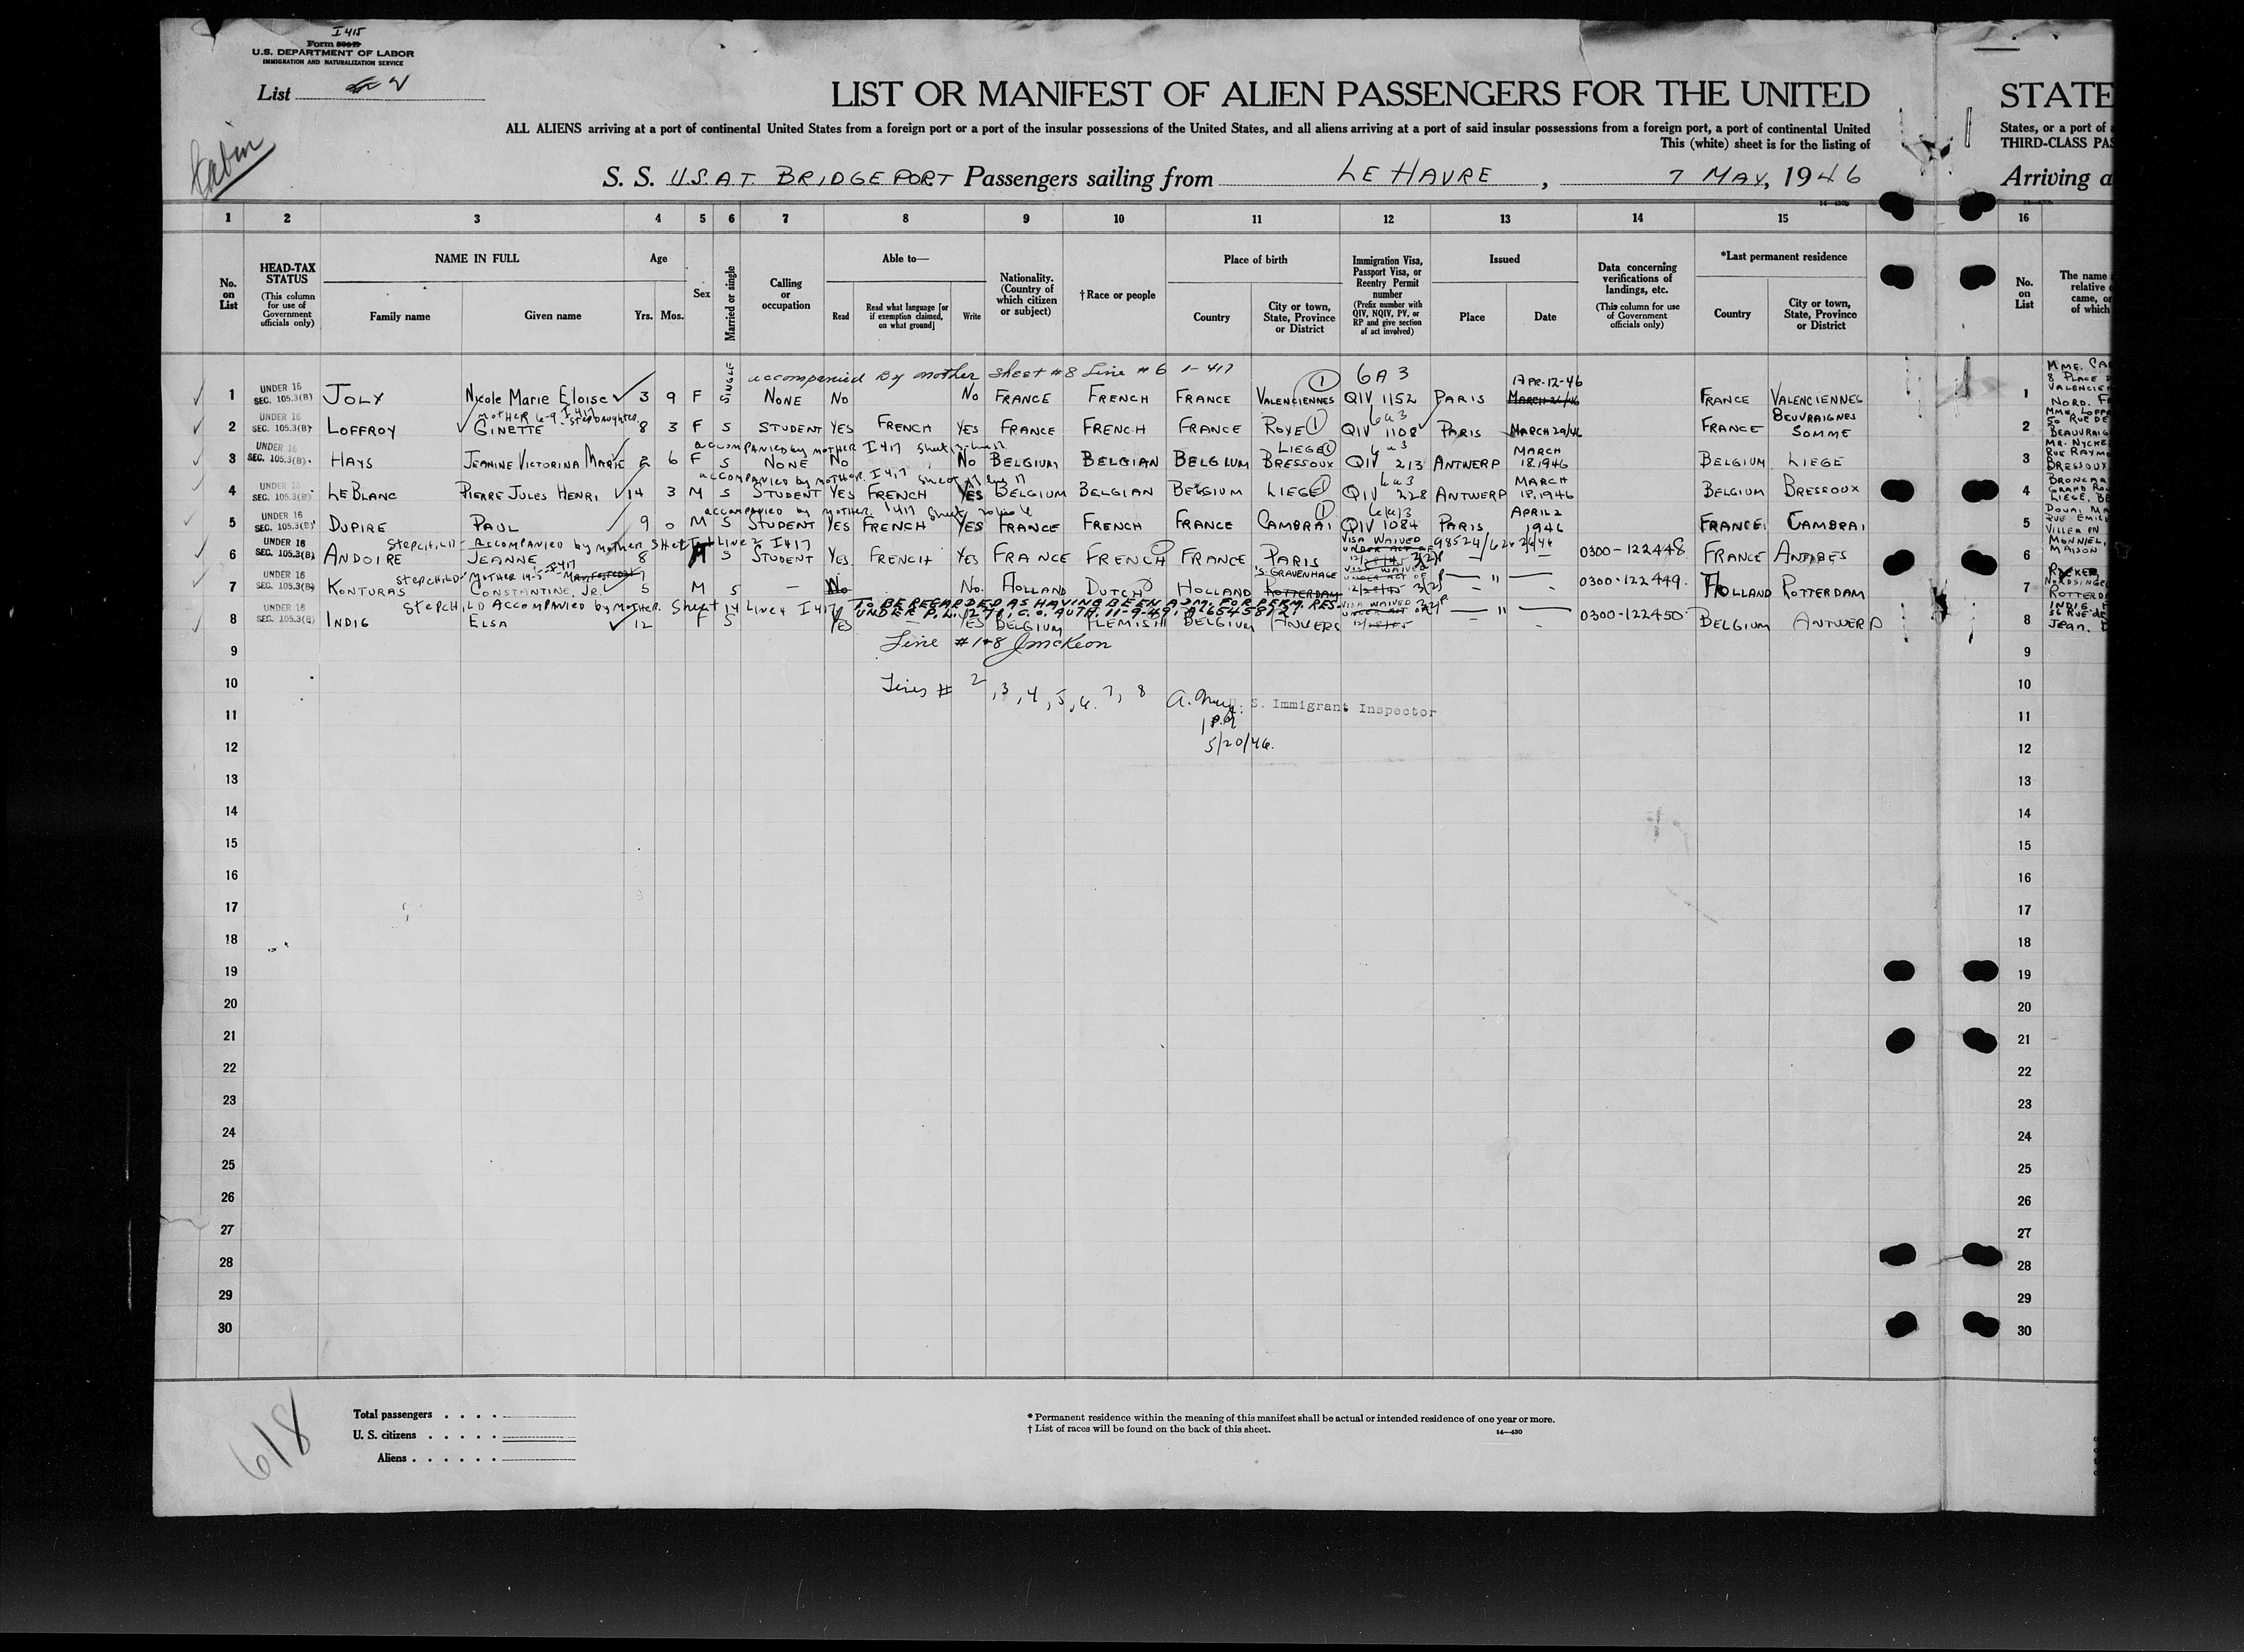 I 415
Form 500-B
U.S. DEPARTMENT OF LABOR
IMMIGRATION AND NATURALIZATION SERVICE
List
Cabin
LIST OR MANIFEST OF ALIEN PASSENGERS FOR THE UNITED STATE
ALL ALIENS arriving at a port of continental United States from a foreign port or a port of the insular possessions of the United States, and all aliens arriving at a port of said insular possessions from a foreign port, a port of continental United States, or a port of
This (white) sheet is for the listing of THIRD-CLASS PAS
S. S. U.S.A.T. BRIDGEPORT Passengers sailing from LE HAVRE, 7 MAY, 1946 Arriving a
1 2 3 4 5 6 7 8 9 10 11 12 13 14 15 16
No. on List
HEAD-TAX STATUS (This column for use of Government officials only)
NAME IN FULL
Family name Given name
Age
Yrs. Mos.
Sex
Married or single
Calling or occupation
Able to—
Read Read what language [or if exemption claimed, on what ground] Write
Nationality. (Country of which citizen or subject)
†Race or people
Place of birth
Country City or town, State, Province or District
Immigration Visa, Passport Visa, or Reentry Permit number (Prefix number with QIV, NQIV, PV, or RP and give section of act involved)
Issued
Place Date
Data concerning verifications of landings, etc. (This column for use of Government officials only)
*Last permanent residence
Country City or town, State, Province or District
No. on List
The name relative came, or of which
accompanied By mother sheet #8 Line #6 1-417 6A3
1 UNDER 16 SEC. 105.3(B) JOLY Nicole Marie Eloise 3 9 F SINGLE NONE NO No FRANCE FRENCH FRANCE VALENCIENNES 1 QIV 1152 PARIS APR-12-46 FRANCE VALENCIENNES 1
MOTHER 6-9 I 417 Stepdaughter 6a3
2 UNDER 16 SEC. 105.3(B) LOFFROY GINETTE 8 3 F S STUDENT YES FRENCH YES FRANCE FRENCH FRANCE ROYE 1 QIV 1108 PARIS MARCH 29/46 FRANCE BEUVRAIGNES SOMME 2
accompanied by mother I 417 Sheet 6a3
3 UNDER 16 SEC. 105.3(B) HAYS JEANINE VICTORINA MARIE 2 6 F S NONE NO No BELGIUM BELGIAN BELGIUM LIEGE 1 BRESSOUX QIV 213 ANTWERP MARCH 18.1946 BELGIUM LIEGE 3
accompanied by mother. I 417 Sheet 6a3
4 UNDER 16 SEC. 105.3(B) LEBLANC PIERRE JULES HENRI 14 3 M S STUDENT YES FRENCH YES BELGIUM BELGIAN BELGIUM LIEGE 1 QIV 228 ANTWERP MARCH 18,1946 BELGIUM BRESSOUX 4
accompanied by mother. 1417 Sheet
5 UNDER 16 SEC. 105.3(B) DUPIRE PAUL 9 0 M S STUDENT YES FRENCH YES FRANCE FRENCH FRANCE CAMBRAI 1 QIV 1084 PARIS APRIL 2 1946 FRANCE CAMBRAI 5
Stepchild - Accompanied by mother Sheet Line 2 I 417
6 UNDER 16 SEC. 105.3(B) ANDOIRE JEANNE 8 S STUDENT YES FRENCH YES FRANCE FRENCH FRANCE PARIS VISA WAIVED UNDER ACT OF 0300-122448 FRANCE ANTIBES 6
Stepchild - MOTHER 14-5 I 417
7 UNDER 16 SEC. 105.3(B) KONTURAS CONSTANTINE, JR. 5 M S — No No. HOLLAND DUTCH HOLLAND 'S-GRAVENHAGE ROTTERDAM VISA WAIVED UNDER ACT OF — " — 0300-122449. HOLLAND ROTTERDAM 7
StepCHILD ACCOMPANIED by MOTHER. Sheet 14 Line 4 I 417
TO BE REGARDED AS HAVING BEEN ADM. FOR PERM. RES.
8 UNDER 16 SEC. 105.3(B) INDIG ELSA 12 F S YES YES BELGIUM FLEMISH BELGIUM ANVERS VISA WAIVED UNDER ACT OF — " — 0300-122450 BELGIUM ANTWERP 8
9 Line #1+8 J McKeon 9
10 Lines # 2, 3, 4, 5, 6. 7, 8 10
11 U. S. Immigrant Inspector 11
12 5/20/46. 12
13 13
14 14
15 15
16 16
17 17
18 18
19 19
20 20
21 21
22 22
23 23
24 24
25 25
26 26
27 27
28 28
29 29
30 30
618
Total passengers
U. S. citizens
Aliens
* Permanent residence within the meaning of this manifest shall be actual or intended residence of one year or more.
† List of races will be found on the back of this sheet.
14—430